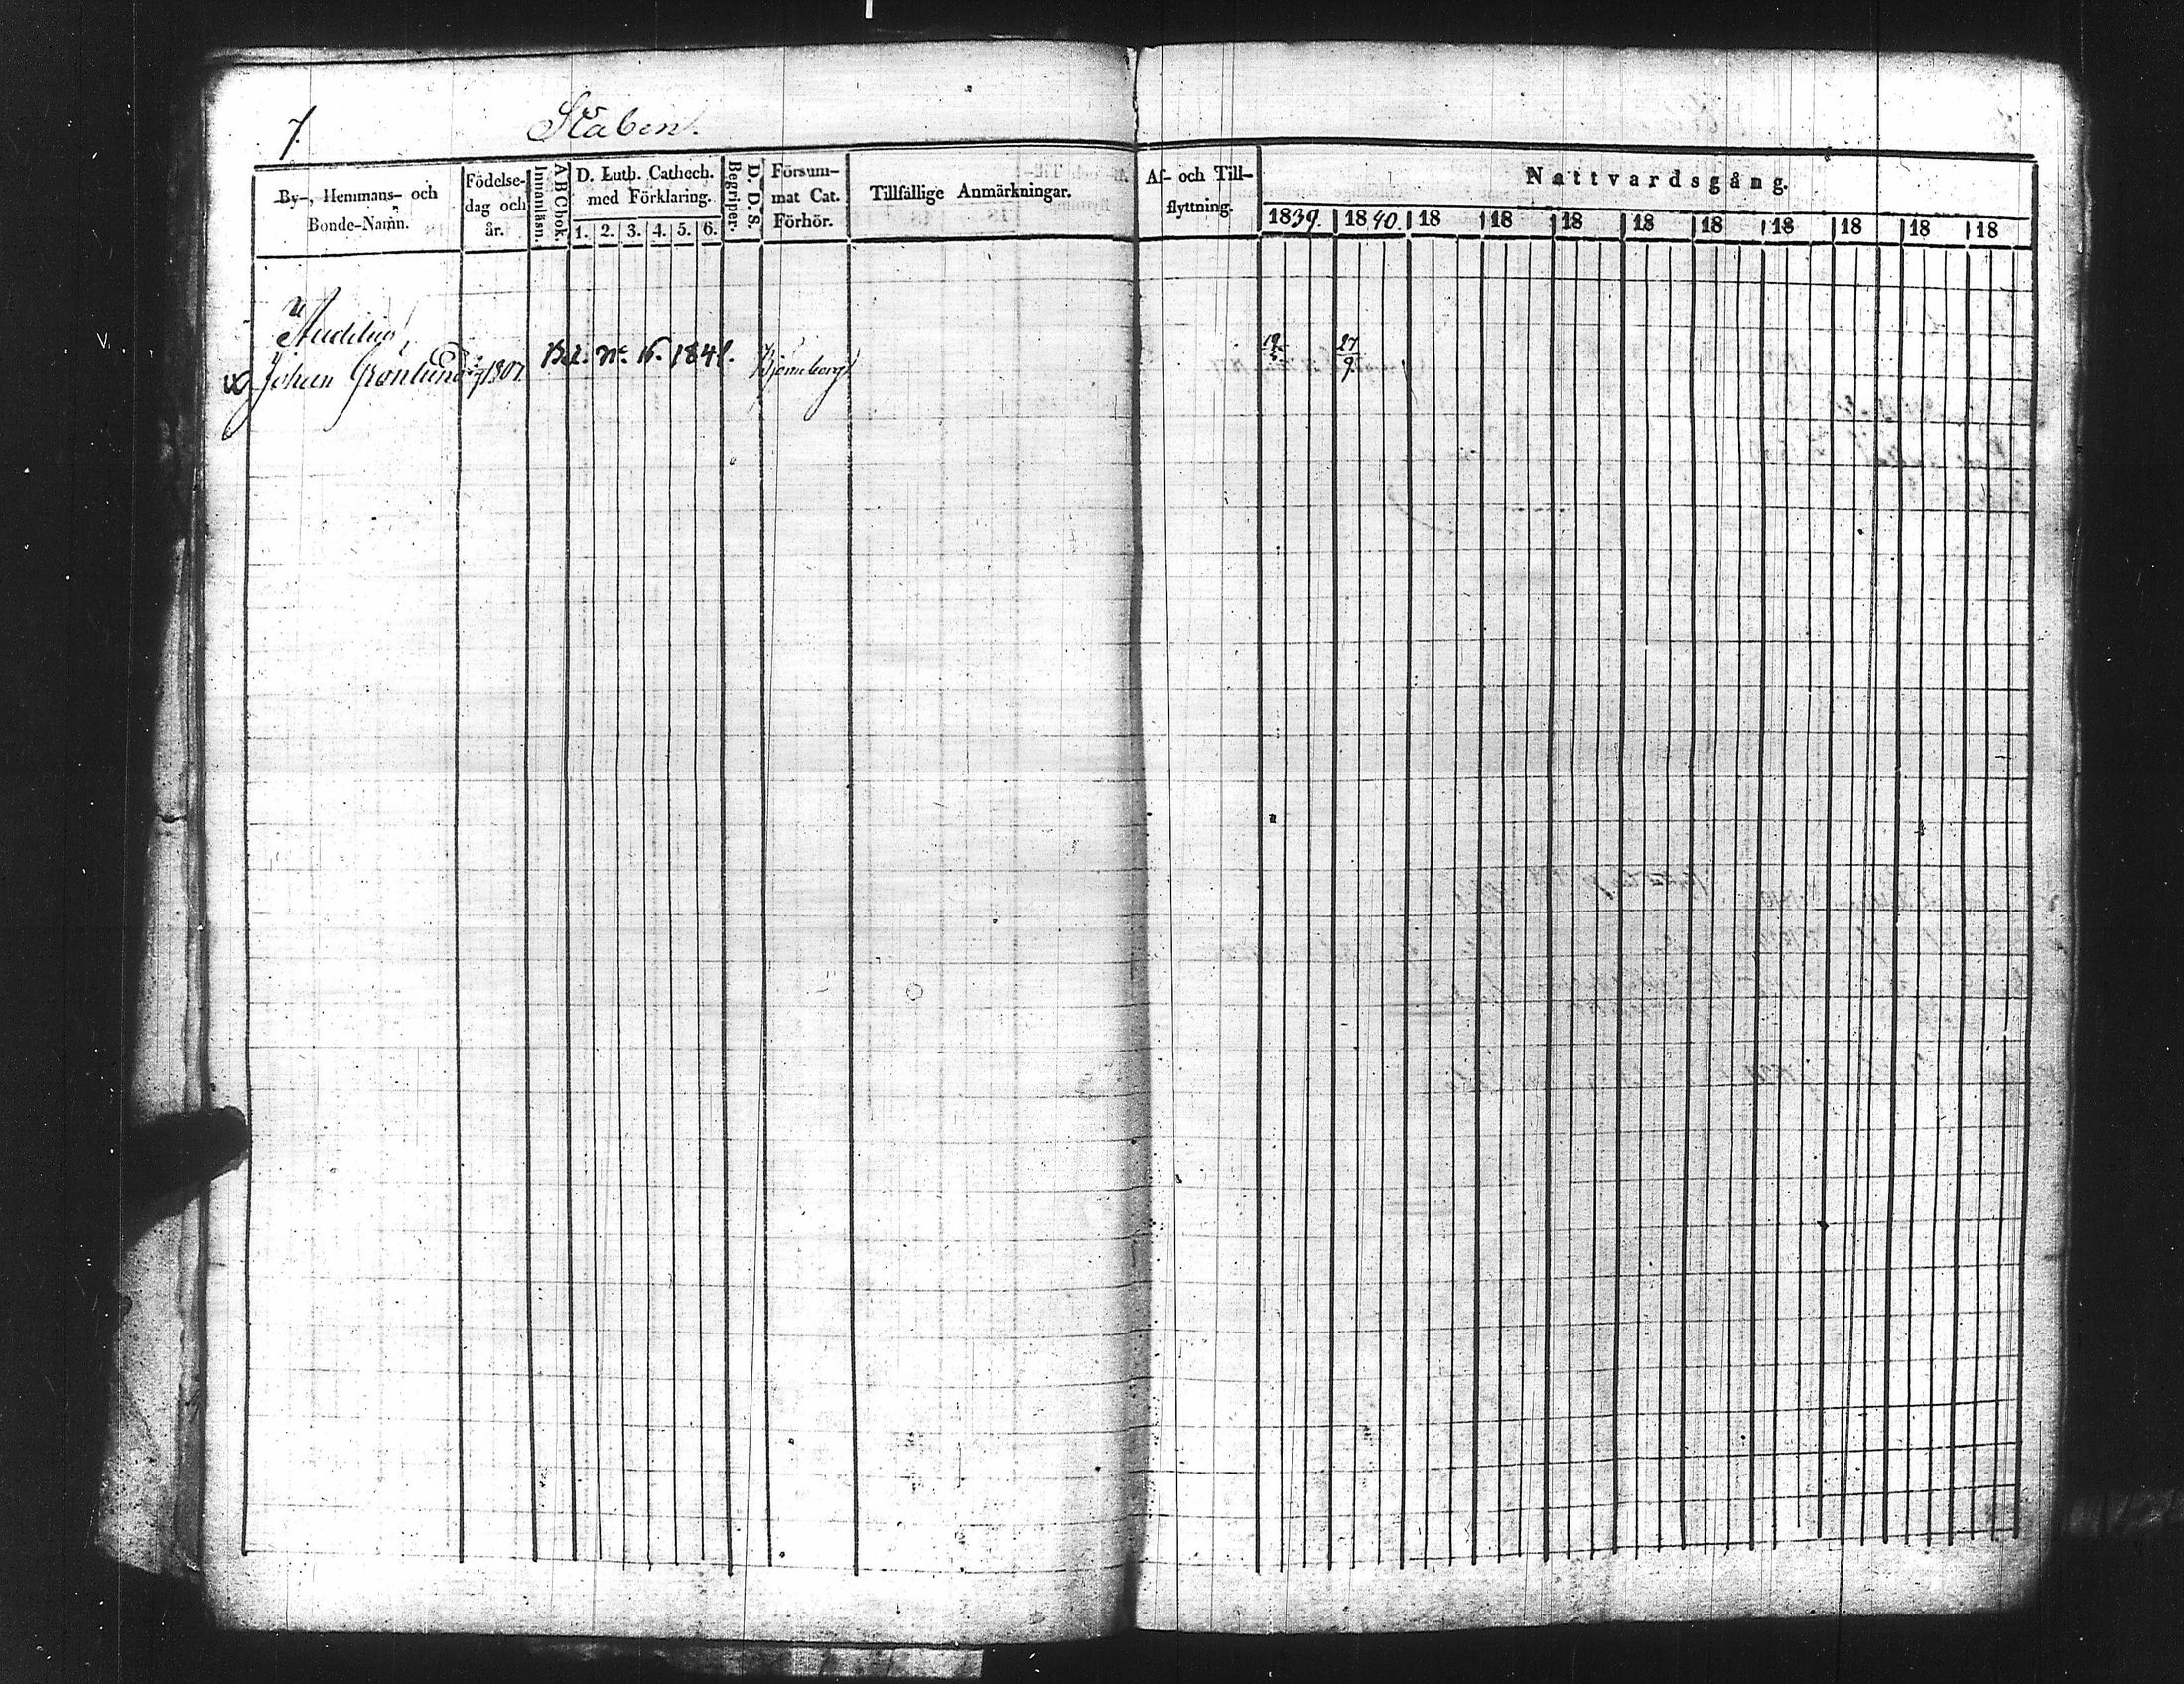 7.
Staben.
By-, Hemmans- och Bonde-Namn.
Födelse-dag och år.
Innanläsn.
A B C bok.
D. Luth. Cathech. med Förklaring.
1. 2. 3. 4. 5. 6.
Begriper.
D. D. S.
Försum-mat Cat. Förhör.
Tillfällige Anmärkningar.
Af- och Till-flyttning.
Nattvardsgång.
1839. 1840. 18 18 18 18 18 18 18 18 18
Johan Grönlund 1807. Bet. No 16. 1841. Björneborg
27/9